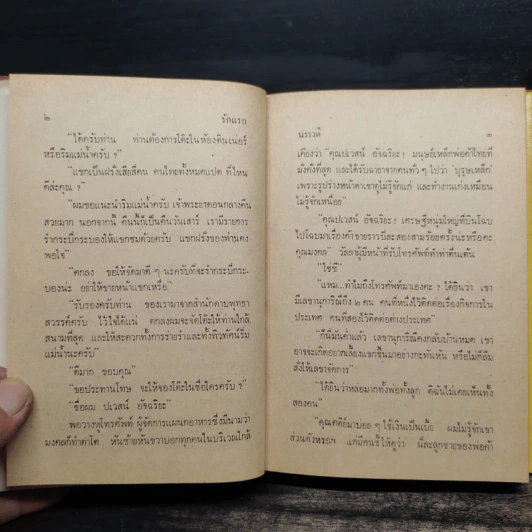 ๒ รักแรก
"ได้ครับท่าน ท่านต้องการโต๊ะในห้องดินเน่อร์
หรือริมแม่น้ำครับ ?"
"แขกเป็นฝรั่งเสียสี่คน คนไทยทั้งหมดแปด ที่ไหน
ดีล่ะคุณ ?"
"ผมขอแนะนำริมแม่น้ำครับ เจ้าพระยาตอนกลางคืน
สวยมาก นอกจากนี้ คืนนี้ก็เป็นคืนวันเสาร์ เรามีรายการ
รำกระบี่กระบองให้แขกชมด้วยครับ แขกฝรั่งของท่านคง
พอใจ"
"ตกลง ขอให้จัดมาดี ๆ นะครับที่จะรำกระบี่กระ-
บองน่ะ อย่าให้ขายหน้าแขกเหรื่อ"
"รับรองครับท่าน ของเรามาจากสำนักดาบพุทธา
สวรรค์ครับ ไว้ใจได้แน่ ตกลงผมจะจัดโต๊ะให้ท่านใกล้
สนามที่สุด และให้สะดวกทั้งการร่ายรำและทั้งทิวทัศน์ริม
แม่น้ำนะครับ"
"ดีมาก ขอบคุณ"
"ขอประทานโทษ จะให้จองโต๊ะในชื่อใครครับ ?"
"ชื่อผม ปเวสน์ อัจฉริยะ"
พอวางหูโทรศัพท์ ผู้จัดการแผนกอาหารซึ่งมีนามว่า
มงคลก็ทำตาโต หันซ้ายหันขวาบอกทุกคนในบริเวณใกล้
นราวดี ๓
เคียงว่า "คุณปเวสน์ อัจฉริยะ! มนุษย์เหล็กพ่อค้าไทยที่
มั่งคั่งที่สุด และได้รับฉายาจากคนทั่ว ๆ ไปว่า 'บุรุษเหล็ก'
เพราะรูปร่างหน้าตาเขาดูไม่รู้จักแก่ และทำงานเก่งเหมือน
ไม่รู้จักเหนื่อย"
"คุณปเวสน์ อัจฉริยะ ! เศรษฐีหนุ่มใหญ่ที่บินโฉบ
ไปโฉบมาเรื่องค้าขายราวปีละสองสามร้อยครั้งน่ะหรือคะ
คุณมงคล" วัลลาผู้มีหน้าที่รับโทรศัพท์ทำท่าตื่นเต้น
"ใช่ซี"
"แหม...ทำไมถึงโทรศัพท์มาเองคะ ? ได้ยินว่า เขา
มีเลขานุการถึง ๒ คน คนที่หนึ่งไว้ติดต่อเรื่องกิจการใน
ประเทศ คนที่สองไว้ติดต่อต่างประเทศ"
"ก็นี่มันค่ำแล้ว เลขานุการมีคงกลับบ้านหมด เขา
อาจจะเกิดอยากเลี้ยงแขกขึ้นมาอย่างกะทันหัน หรือไม่ก็ลืม
สั่งให้เลขาจัดการ"
"ได้ยินว่าหล่อมากทั้งพ่อทั้งลูก ดิฉันไม่เคยเห็นทั้ง
สองคน"
"คุณดิย์มาบ่อย ๆ ใช้เงินเป็นเบี้ย ผมไม่รู้จักเขา
ส่วนตัวหรอก แต่มีคนชี้ให้ดูว่า นี่ละลูกชายของพ่อค้า